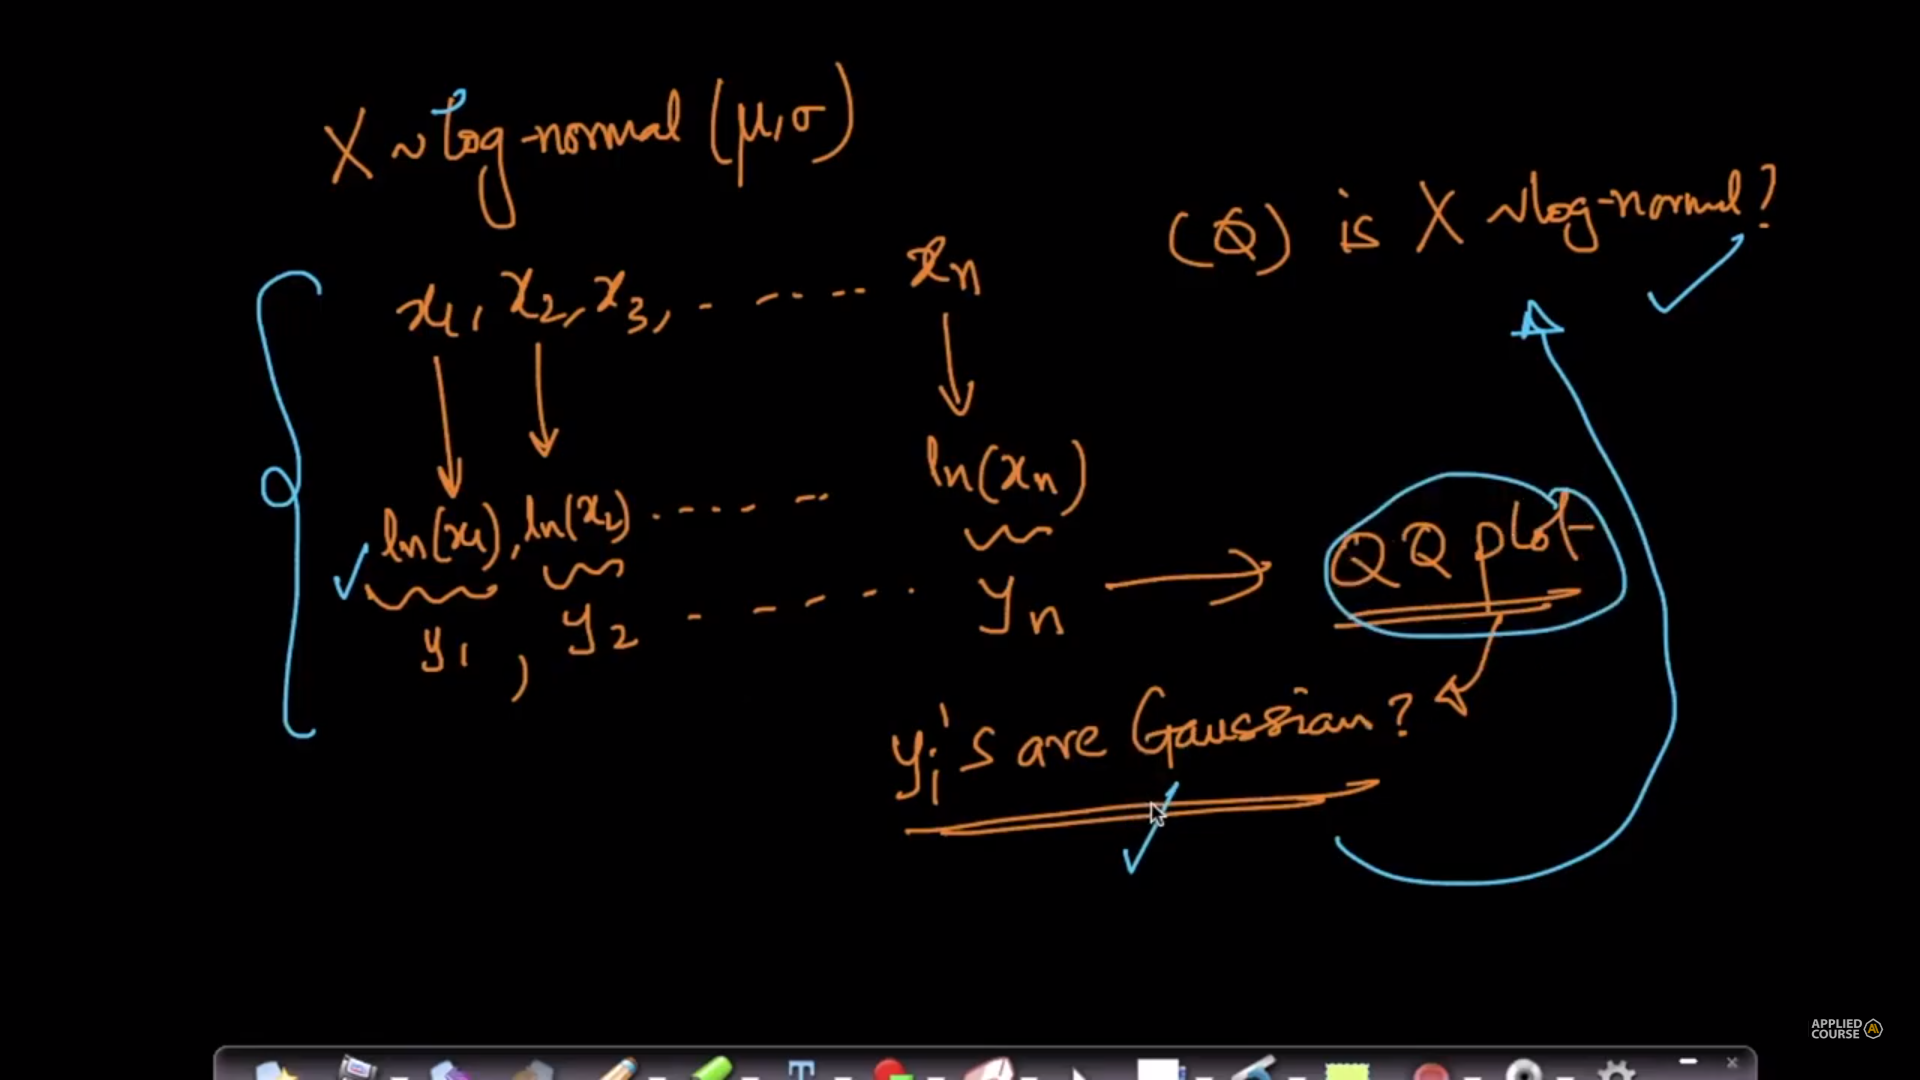 X ~ log-normal (μ, σ)
(Q) is X ~ log-normal?
x₁, x₂, x₃, . - - . - - xₙ
ln(x₁), ln(x₂) . - - - - - ln(xₙ)
y₁, y₂ - - - - - . yₙ
QQ plot
yᵢ's are Gaussian?
APPLIED
COURSE
T